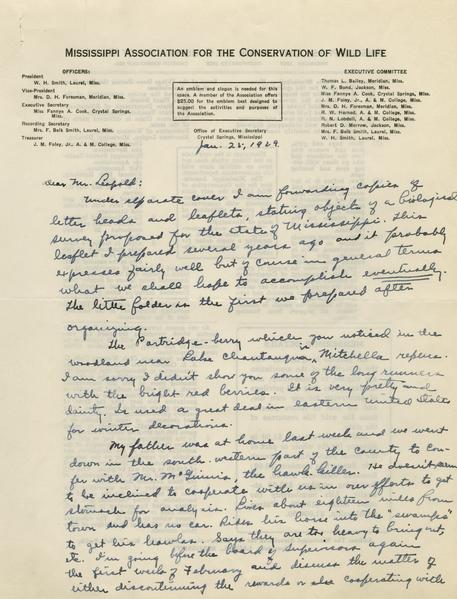 MISSISSIPPI ASSOCIATION FOR THE CONSERVATION OF WILD LIFE
OFFICERS:
President
W. H. Smith, Laurel, Miss.
Vice-President
Mrs. D. H. Foresman, Meridian, Miss.
Executive Secretary
Miss Fannye A. Cook, Crystal Springs,
Miss.
Recording Secretary
Mrs. F. Bels Smith, Laurel, Miss.
Treasurer
J. M. Foley, Jr., A. & M. College, Miss.
An emblem and slogan is needed for this
space. A member of the Association offers
$25.00 for the emblem best designed to
suggest the activities and purposes of
the Association.
Office of Executive Secretary
Crystal Springs, Mississippi
EXECUTIVE COMMITTEE
Thomas L. Bailey, Meridian, Miss.
W. F. Bond, Jackson, Miss.
Miss Fannye A. Cook, Crystal Springs, Miss.
J. M. Foley, Jr., A. & M. College, Miss.
Mrs. D. H. Foresman, Meridian, Miss.
R. W. Harned, A. & M. College, Miss.
R. N. Lobdell, A. & M. College, Miss.
Robert D. Morrow, Jackson, Miss.
Mrs. F. Bels Smith, Laurel, Miss.
W. H. Smith, Laurel, Miss.
Jan. 25, 1929.
Dear Mr. Leopold:
Under separate cover I am forwarding copies of
letter heads and leaflets, stating objects of a biological
survey proposed for the state of Mississippi. This
leaflet I prepared several years ago and it probably
expresses fairly well but of course in general terms
what we shall hope to accomplish eventually.
The little folder is the first we prepared after
organizing.
The Partridge-berry which you noticed in the
woodland near Lake Chautauqua is Mitchella repens.
I am sorry I didn't show you some of the long runners
with the bright red berries. It is very pretty and
dainty. Is used a great deal in eastern United States
for winter decorations.
My father was at home last week and we went
down in the south-western part of the county to con-
fer with Mr. McGinnis, the hawk-killer. He doesn't seem
to be inclined to cooperate with us in our efforts to get
stomach for analysis. Lives about eighteen miles from
town and has no car. Rides his horse into the "swamps"
to get his hawks. Says they are too heavy to bring out,
etc. I'm going before the board of supervisors again
the first week of February and discuss the matter of
either discontinuing the rewards or else cooperating with